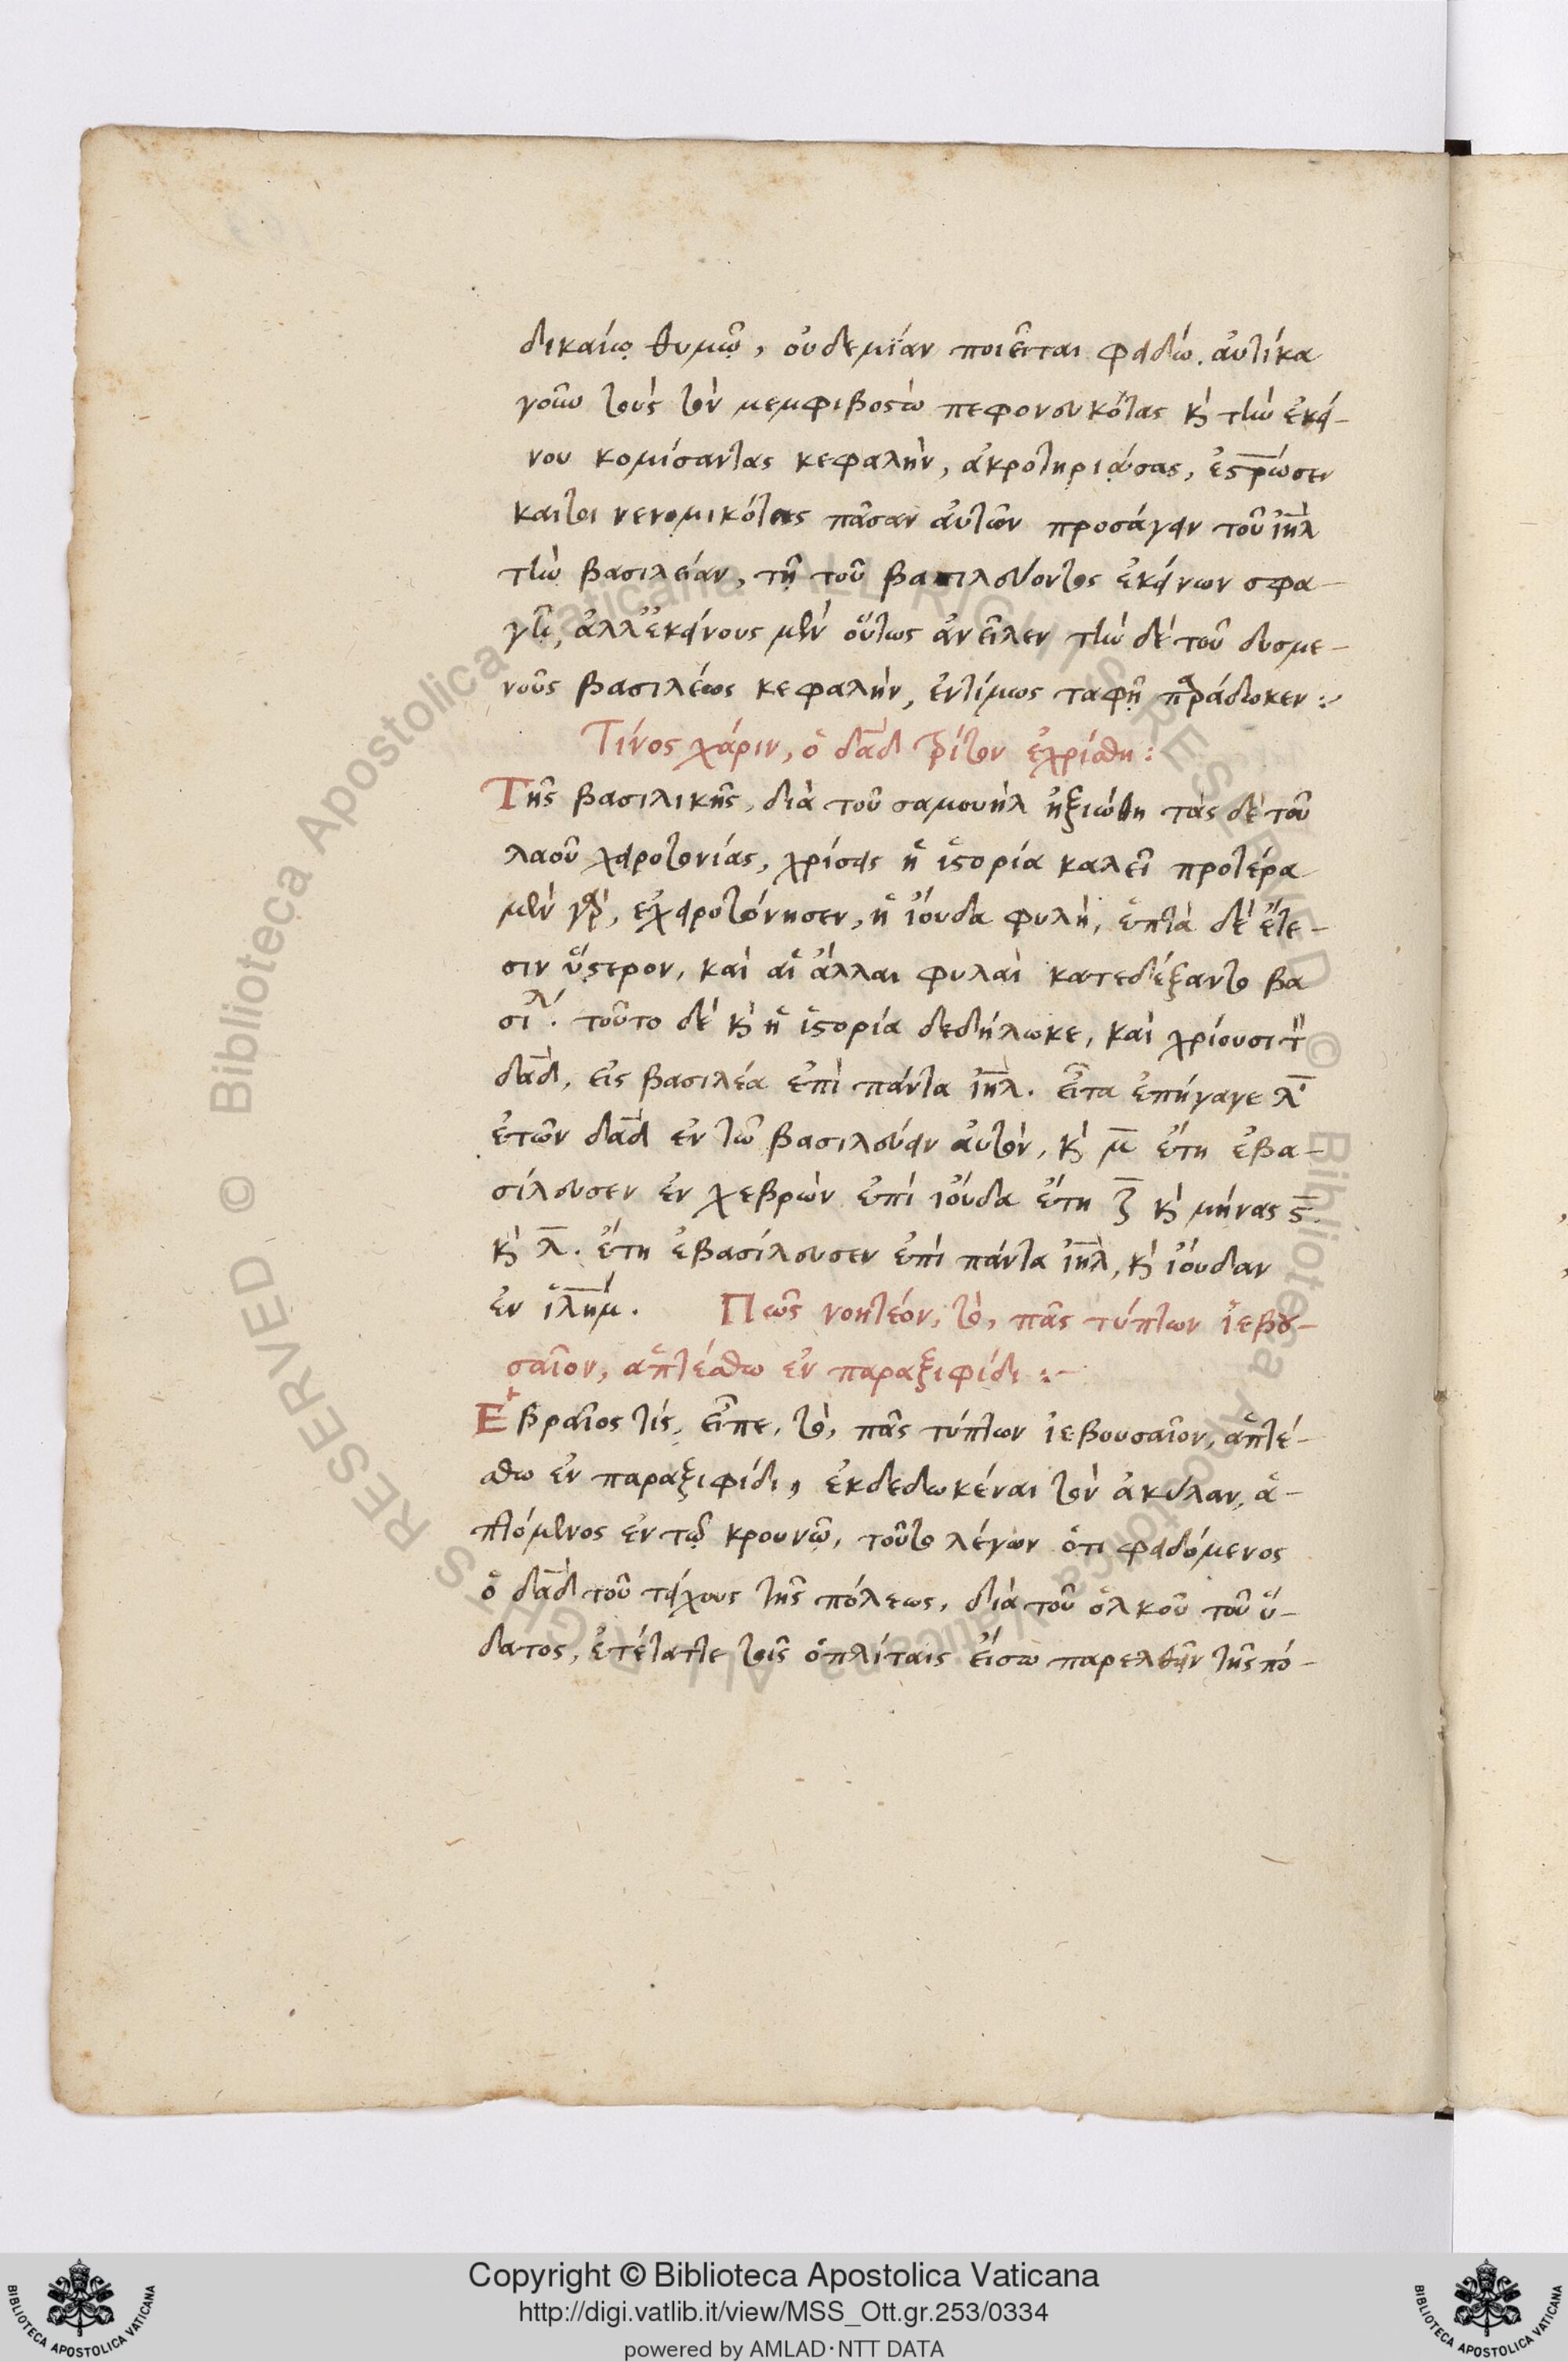 δικαίῳ θυμῶ, οὐδεμίαν ποιεῖται φειδώ. ἀυτίκα
γοῦν τοὺς τὸν μεμφιβοστὼ πεφονευκότας κὴ τὴν ἐκεί-
νου κομίσαντας κεφαλὴν, ἀκροτηριάσας, ἐσταύρωσεν
καίτοι νενομικότας πᾶσαν ἀυτῶν προσάγειν τοῦ ιηλ
τὴν βασιλείαν, τῇ τοῦ βασιλεύοντος ἐκείνων σφα-
γῇ, ἀλλ' ἐκείνους μὲν οὕτως ἀνεῖλεν τὴν δὲ τοῦ δυσμε-
νοῦς βασιλέως κεφαλὴν, ἐντίμως ταφῇ παράδωκεν :~
Τίνος χάριν, ὁ δαδ τρίτον ἐχρίσθη :
Τῆς βασιλικῆς, διὰ τοῦ σαμουὴλ ἠξιώθη τὰς δὲ τοῦ
λαοῦ χειροτονίας, χρίσεις ἡ ἱστορία καλεῖ προτέρα
μὲν γὰρ, ἐχειροτόνησεν, ἡ ἰούδα φυλὴ, ἑπτὰ δὲ ἔτε-
σιν ὕστερον, καὶ αἱ ἄλλαι φυλαὶ κατεδέξαντο βα
σιλ. τοῦτο δὲ κὴ ἡ ἱστορία δεδήλωκε, καὶ χρίουσι τὸν
δαδ, εἰς βασιλέα ἐπὶ πάντα ιηλ. εἶτα ἐπήγαγε λ
ἐτῶν δαδ ἐν τῶ βασιλεύειν ἀυτὸν, κὴ μ ἔτη ἐβα-
σίλευσεν ἐν χεβρὼν ἐπὶ ἰούδα ἔτη ζ κὴ μήνας ς.
κὴ λ. ἔτη ἐβασίλευσεν ἐπὶ πάντα ιηλ, κὴ ἰούδαν
ἐν ιλημ. Πῶς νοητέον, τὸ, πᾶς τύπτων ἰεβου-
σαῖον, ἁπτέσθω ἐν παραξιφίδι :~
Ἑβραῖος τίς, εἶπε, τὸ, πᾶς τύπτων ἰεβουσαῖον, ἁπτέ-
σθω ἐν παραξιφίδι, ἐκδεδωκέναι τὸν ἀκύλαν, ἁ-
πτόμενος ἐν τῷ κρουνῷ, τοῦτο λέγων ὅτι φειδόμενος
ὁ δαδ τοῦ τείχους τῆς πόλεως, διὰ τοῦ ὁλκοῦ τοῦ ὕ-
δατος, ἐτέτατε τοῖς ὁπλίταις εἴσω παρελθεῖν τῆς πό-
Copyright © Biblioteca Apostolica Vaticana
http://digi.vatlib.it/view/MSS_Ott.gr.253/0334
powered by AMLAD·NTT DATA